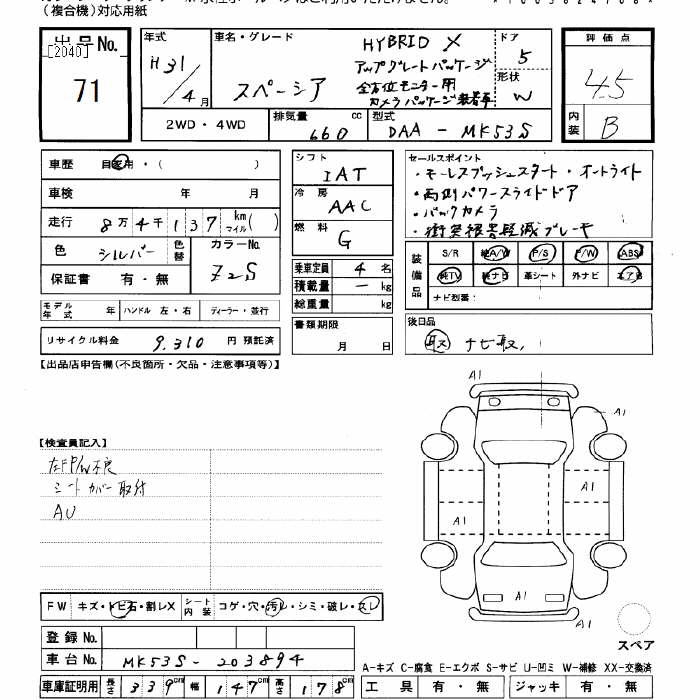 （複合機）対応用紙
出品No.
[2040]
71
年式
H31/4月
車名・グレード
スペーシア
HYBRID X
アップグレードパッケージ
全方位モニター用
カメラパッケージ装着車
ドア
5
形状
W
評価点
4.5
内装
B
2WD・4WD
排気量 cc
660
型式
DAA - MK53S
車歴 自家用・( )
車検 年 月
走行 8万4千137 km マイル( )
色 シルバー 色替
カラーNo.
Z2S
保証書 有・無
モデル年式 年 ハンドル 左・右 ディーラー・並行
リサイクル料金 9,310 円 預託済
シフト
IAT
冷房
AAC
燃料
G
乗車定員 4 名
積載量 ー kg
総重量 kg
書類期限
月 日
セールスポイント
・キーレスプッシュスタート・オートライト
・両側パワースライドドア
・バックカメラ
・衝突被害軽減ブレーキ
装備品
S/R 純A/W P/S P/W ABS
純TV 純ナビ 革シート 外ナビ エアB
ナビ型番：
後日品
取 ナビ取,
【出品店申告欄(不良箇所・欠品・注意事項等)】
【検査員記入】
左FP/W不良
シートカバー取付
AU
A1
A1
A1
A1
A1
A1
スペア
FW キズ・トビ石・割レX シート内装 コゲ・穴・汚レ・シミ・破レ・スレ
登録No.
車台No. MK53S-203894
車庫証明用 長さ 339cm 幅 147cm 高さ 178cm
A-キズ C-腐食 E-エクボ S-サビ U-凹ミ W-補修 XX-交換済
工具 有・無 ジャッキ 有・無